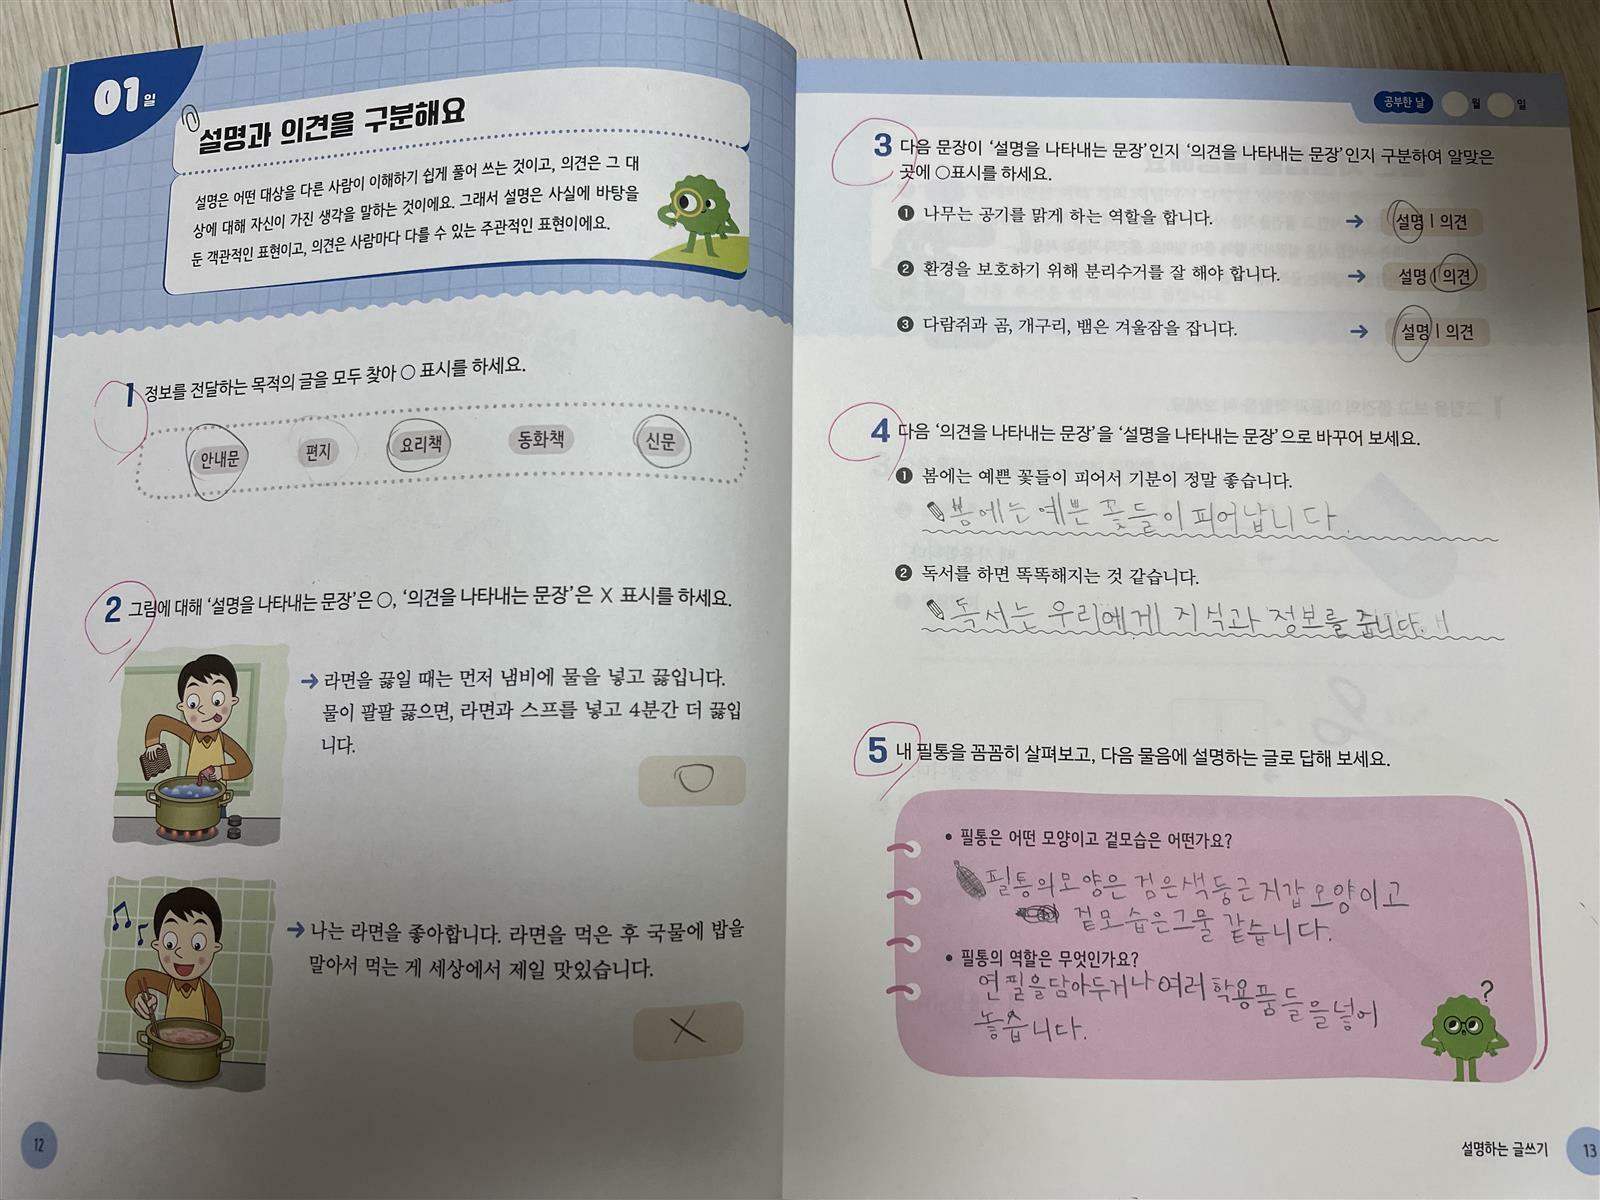 01일
설명과 의견을 구분해요
설명은 어떤 대상을 다른 사람이 이해하기 쉽게 풀어 쓰는 것이고, 의견은 그 대
상에 대해 자신이 가진 생각을 말하는 것이에요. 그래서 설명은 사실에 바탕을
둔 객관적인 표현이고, 의견은 사람마다 다를 수 있는 주관적인 표현이에요.
1 정보를 전달하는 목적의 글을 모두 찾아 ○ 표시를 하세요.
안내문 편지 요리책 동화책 신문
2 그림에 대해 '설명을 나타내는 문장'은 ○, '의견을 나타내는 문장'은 X 표시를 하세요.
→ 라면을 끓일 때는 먼저 냄비에 물을 넣고 끓입니다.
물이 팔팔 끓으면, 라면과 스프를 넣고 4분간 더 끓입
니다.
○
→ 나는 라면을 좋아합니다. 라면을 먹은 후 국물에 밥을
말아서 먹는 게 세상에서 제일 맛있습니다.
X
12
공부한 날 월 일
3 다음 문장이 '설명을 나타내는 문장'인지 '의견을 나타내는 문장'인지 구분하여 알맞은
곳에 ○표시를 하세요.
❶ 나무는 공기를 맑게 하는 역할을 합니다. → 설명 | 의견
❷ 환경을 보호하기 위해 분리수거를 잘 해야 합니다. → 설명 | 의견
❸ 다람쥐과 곰, 개구리, 뱀은 겨울잠을 잡니다. → 설명 | 의견
4 다음 '의견을 나타내는 문장'을 '설명을 나타내는 문장'으로 바꾸어 보세요.
❶ 봄에는 예쁜 꽃들이 피어서 기분이 정말 좋습니다.
봄에는 예쁜 꽃들이 피어납니다.
❷ 독서를 하면 똑똑해지는 것 같습니다.
독서는 우리에게 지식과 정보를 줍니다.
5 내 필통을 꼼꼼히 살펴보고, 다음 물음에 설명하는 글로 답해 보세요.
• 필통은 어떤 모양이고 겉모습은 어떤가요?
필통의모양은 검은색둥근지갑모양이고
겉모습은그물 같습니다.
• 필통의 역할은 무엇인가요?
연필을담아두거나여러학용품들을넣어
놓습니다.
?
설명하는 글쓰기 13